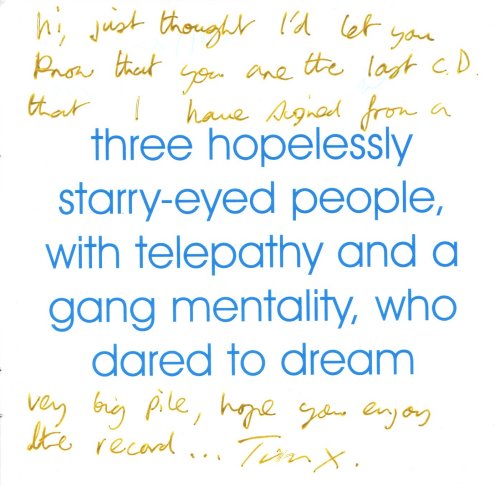 hi, just thought I'd let you
know that you are the last C.D.
that I have signed from a
three hopelessly
starry-eyed people,
with telepathy and a
gang mentality, who
dared to dream
very big pile, hope you enjoy
the record... Tim x.